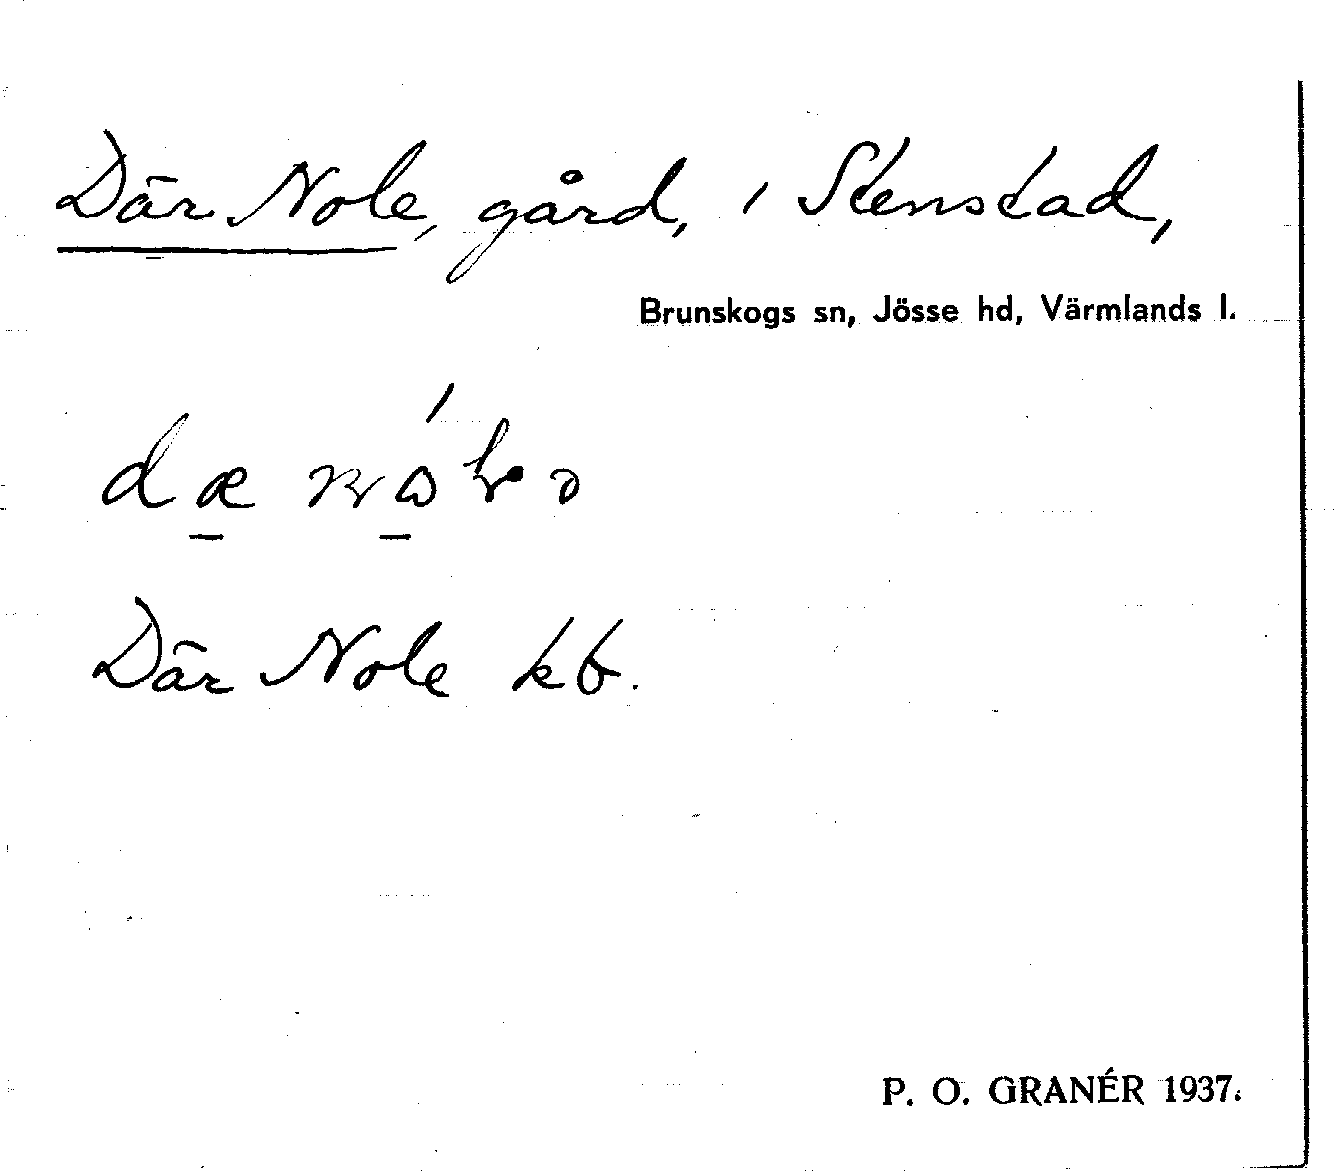 Där Nole, gård, i Stenstad,
Brunskogs sn, Jösse hd, Värmlands l.
Där Nole kb.
P. O. GRANÉR 1937.